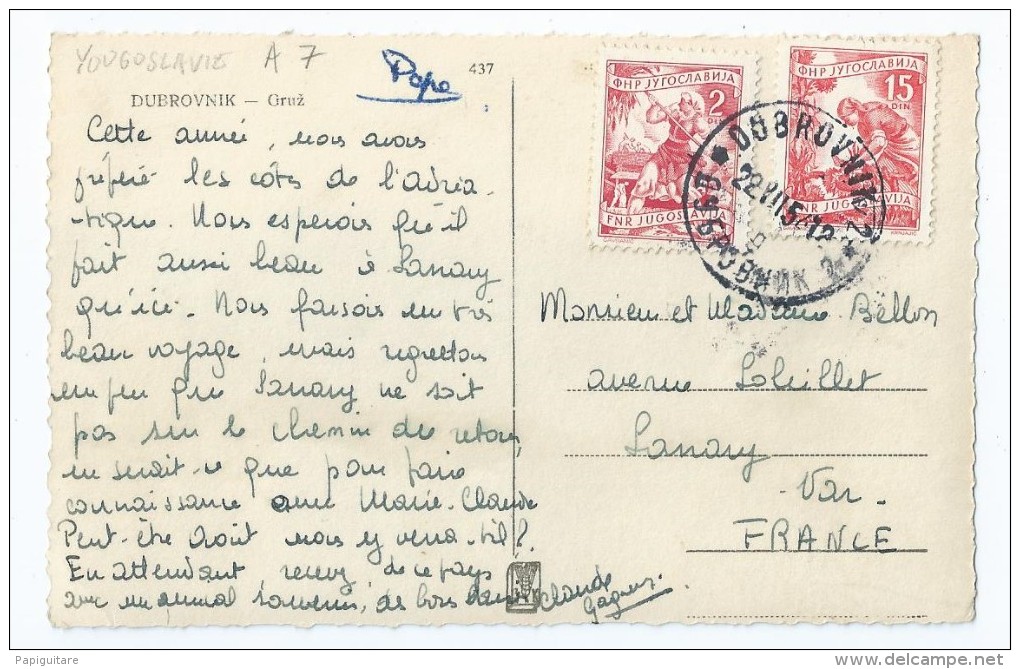 YOUGOSLAVIE A 7
Pope
437
DUBROVNIK — Gruž
Cette année, nous avons
préféré les côtes de l'adria-
-tique. Nous espérons qu'il
fait aussi beau à Sanary
qu'ici. Nous faisons un très
beau voyage, mais regrettons
un peu que Sanary ne soit
pas sur le chemin du retour,
ne serait-ce que pour faire
connaissance avec Marie-Claude
Peut-être Août nous y verra-t-il?
En attendant, recevez, de ce pays
avec un amical souvenir, des bons
Claude
ФНР ЈУГОСЛАВИЈА
2
DIN
FNR JUGOSLAVIJA
ФНР ЈУГОСЛАВИЈА
15
DIN
FNR JUGOSLAVIJA
DUBROVNIK 2
ДУБРОВНИК 2
Monsieur et Madame Bellon
avenue
Sanary
- Var -
FRANCE
Papiguitare
delcampe.net